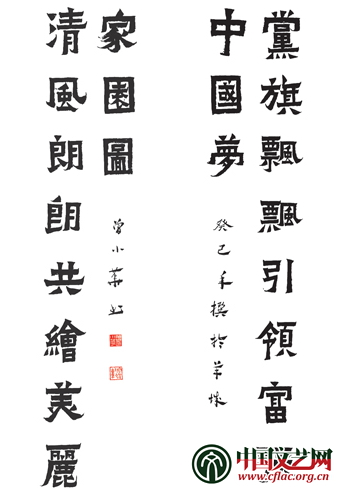 黨旗飄飄引領富
中國夢
癸巳年撰於羊城
清風朗朗共繪美麗
家園圖
曾小華
中国文艺网
www.cflac.org.cn